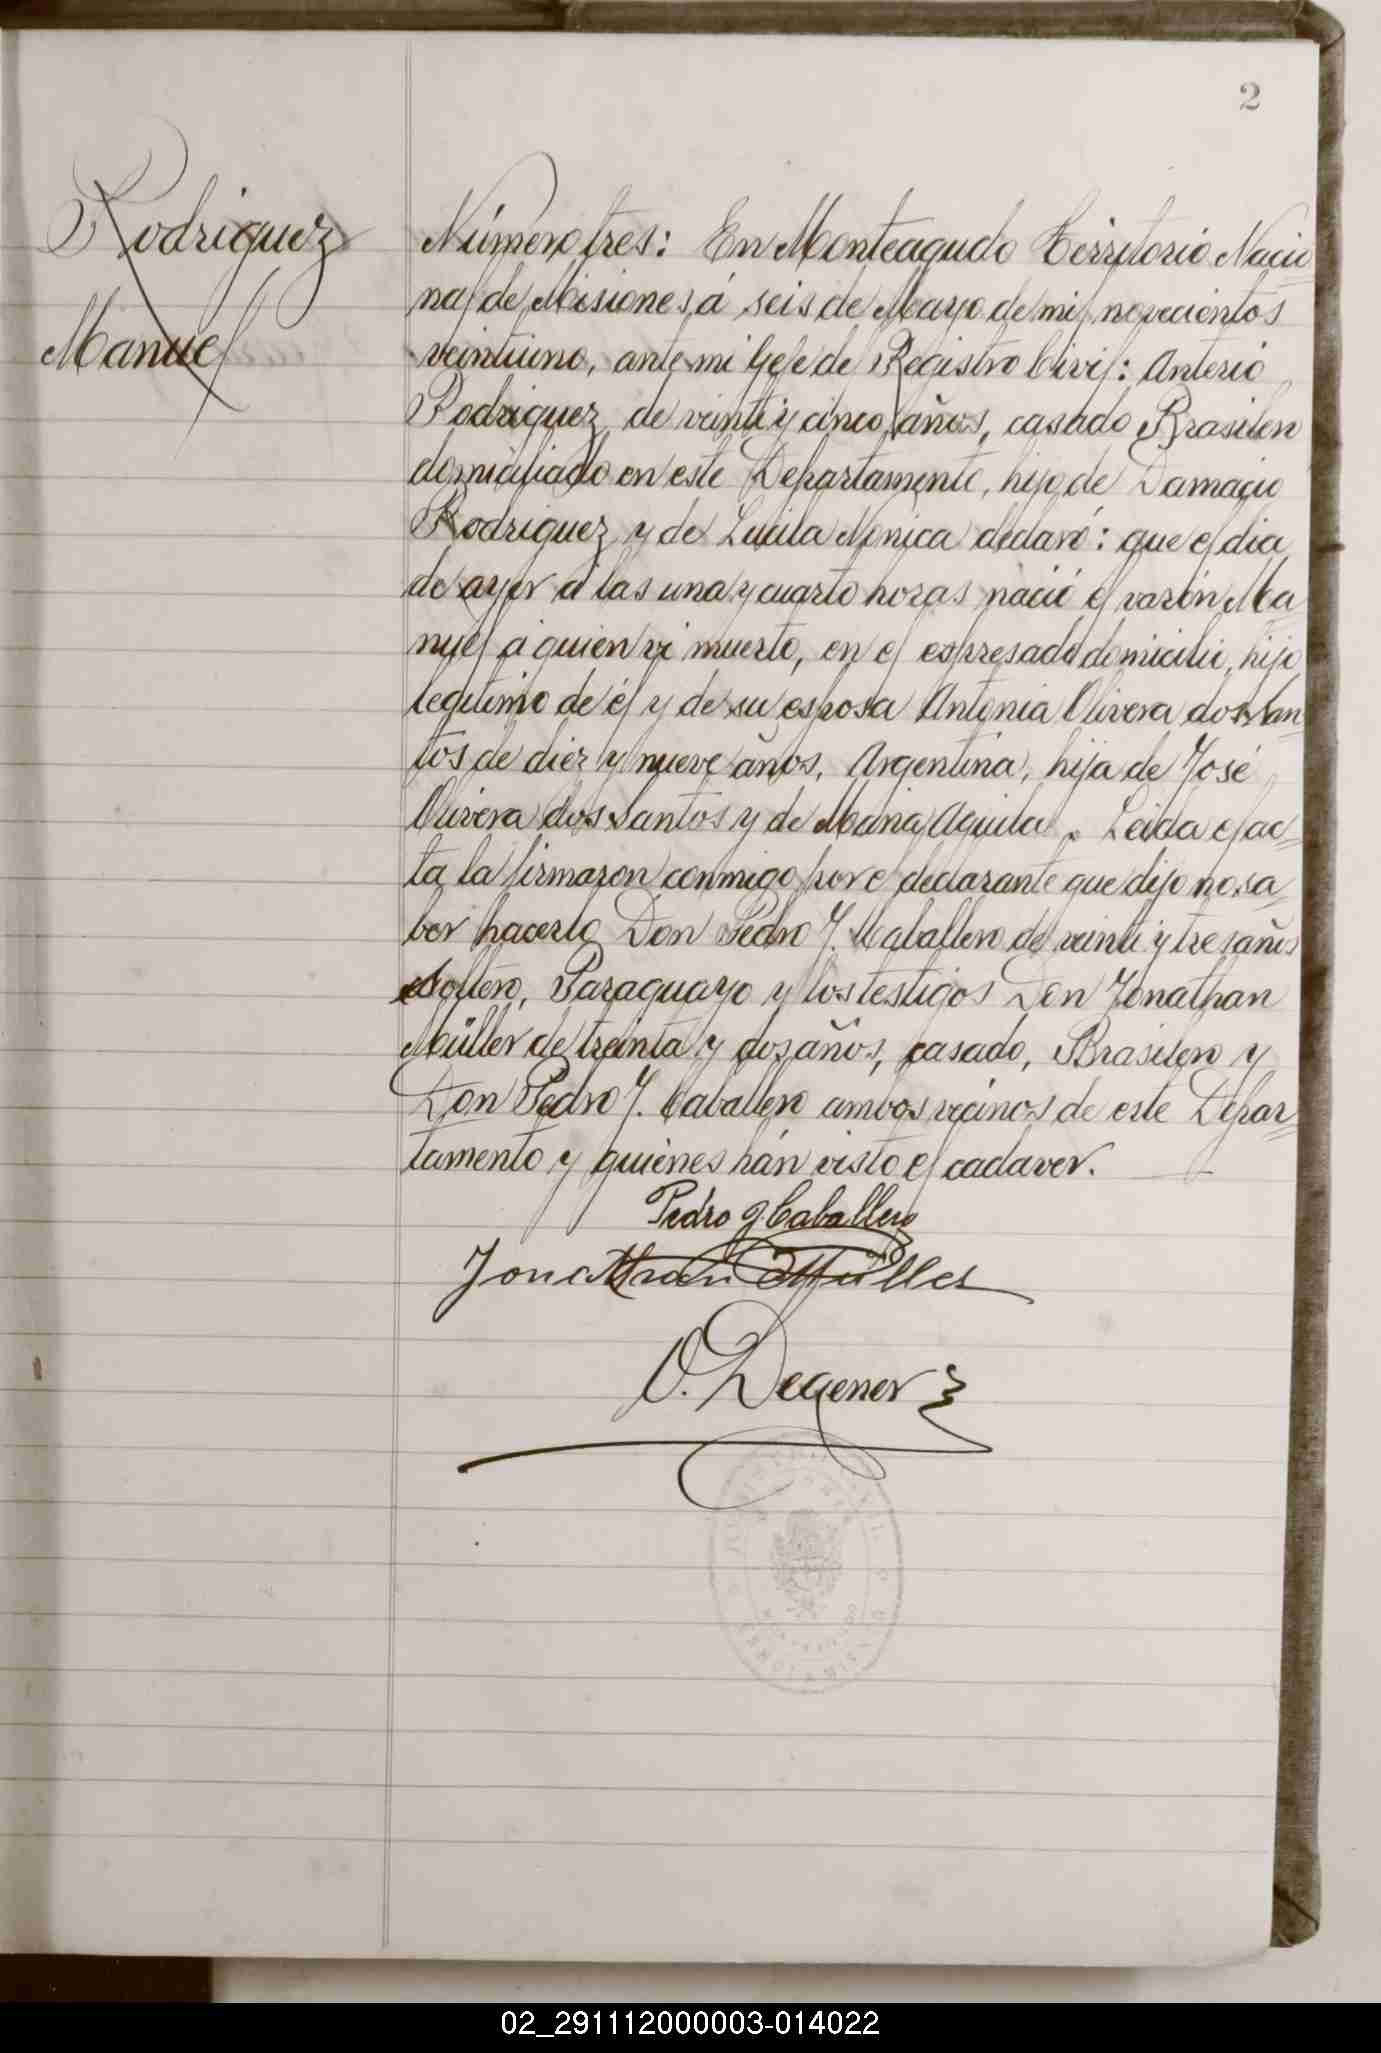 2
Rodriguez
Manuel
Número tres: En Monteagudo Territorio Nacio
nal de Misiones á seis de Mayo de mil novecientos
veintiuno, ante mi Gefe del Registro Civil: Anterio
Rodriguez de veinti y cinco años, casado Brasilero
domiciliado en este Departamento, hijo de Damacio
Rodriguez y de Lucila Monica declaró: que el dia
de ayer á las una y cuarto horas nació el varón Ma
nuel á quien vi muerto, en el espresado domicilio, hijo
legitimo de él y de su esposa Antonia Olivera dos San
tos de diez y nueve años, Argentina, hija de José
Olivera dos Santos y de Maria Aguilar. Leida el ac-
ta la firmaron conmigo por el declarante que dijo no sa
ber hacerlo Don Pedro J. Caballero de veinti y tres años
soltero, Paraguayo y los testigos Don Jonathan
Müller de treinta y dos años, casado, Brasilero y
Don Pedro J. Caballero ambos vecinos de este Depar-
tamento y quiénes hán visto el cadaver.
Pedro J. Caballero
Jonathan Müller
O. Degener
02_291112000003-014022